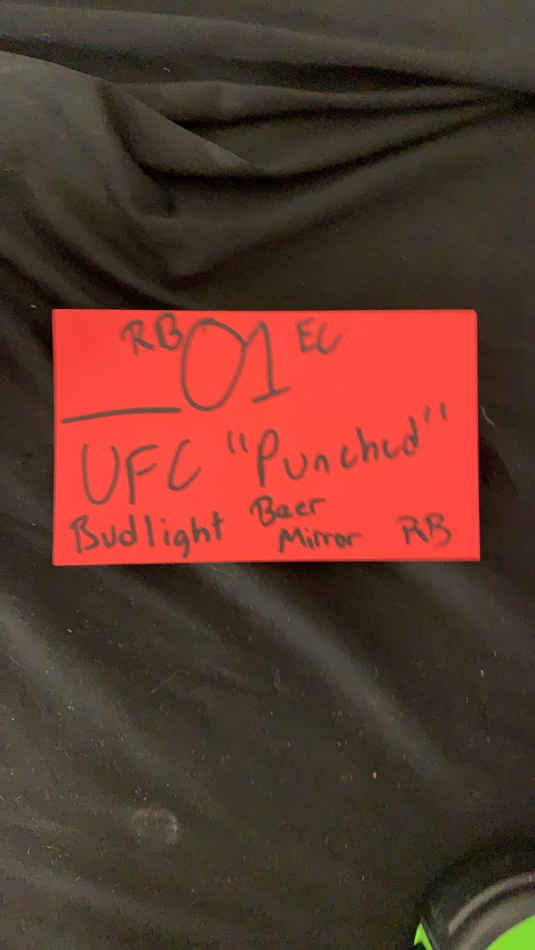 RB 01 EC
UFC "Punched"
Budlight Beer Mirror RB